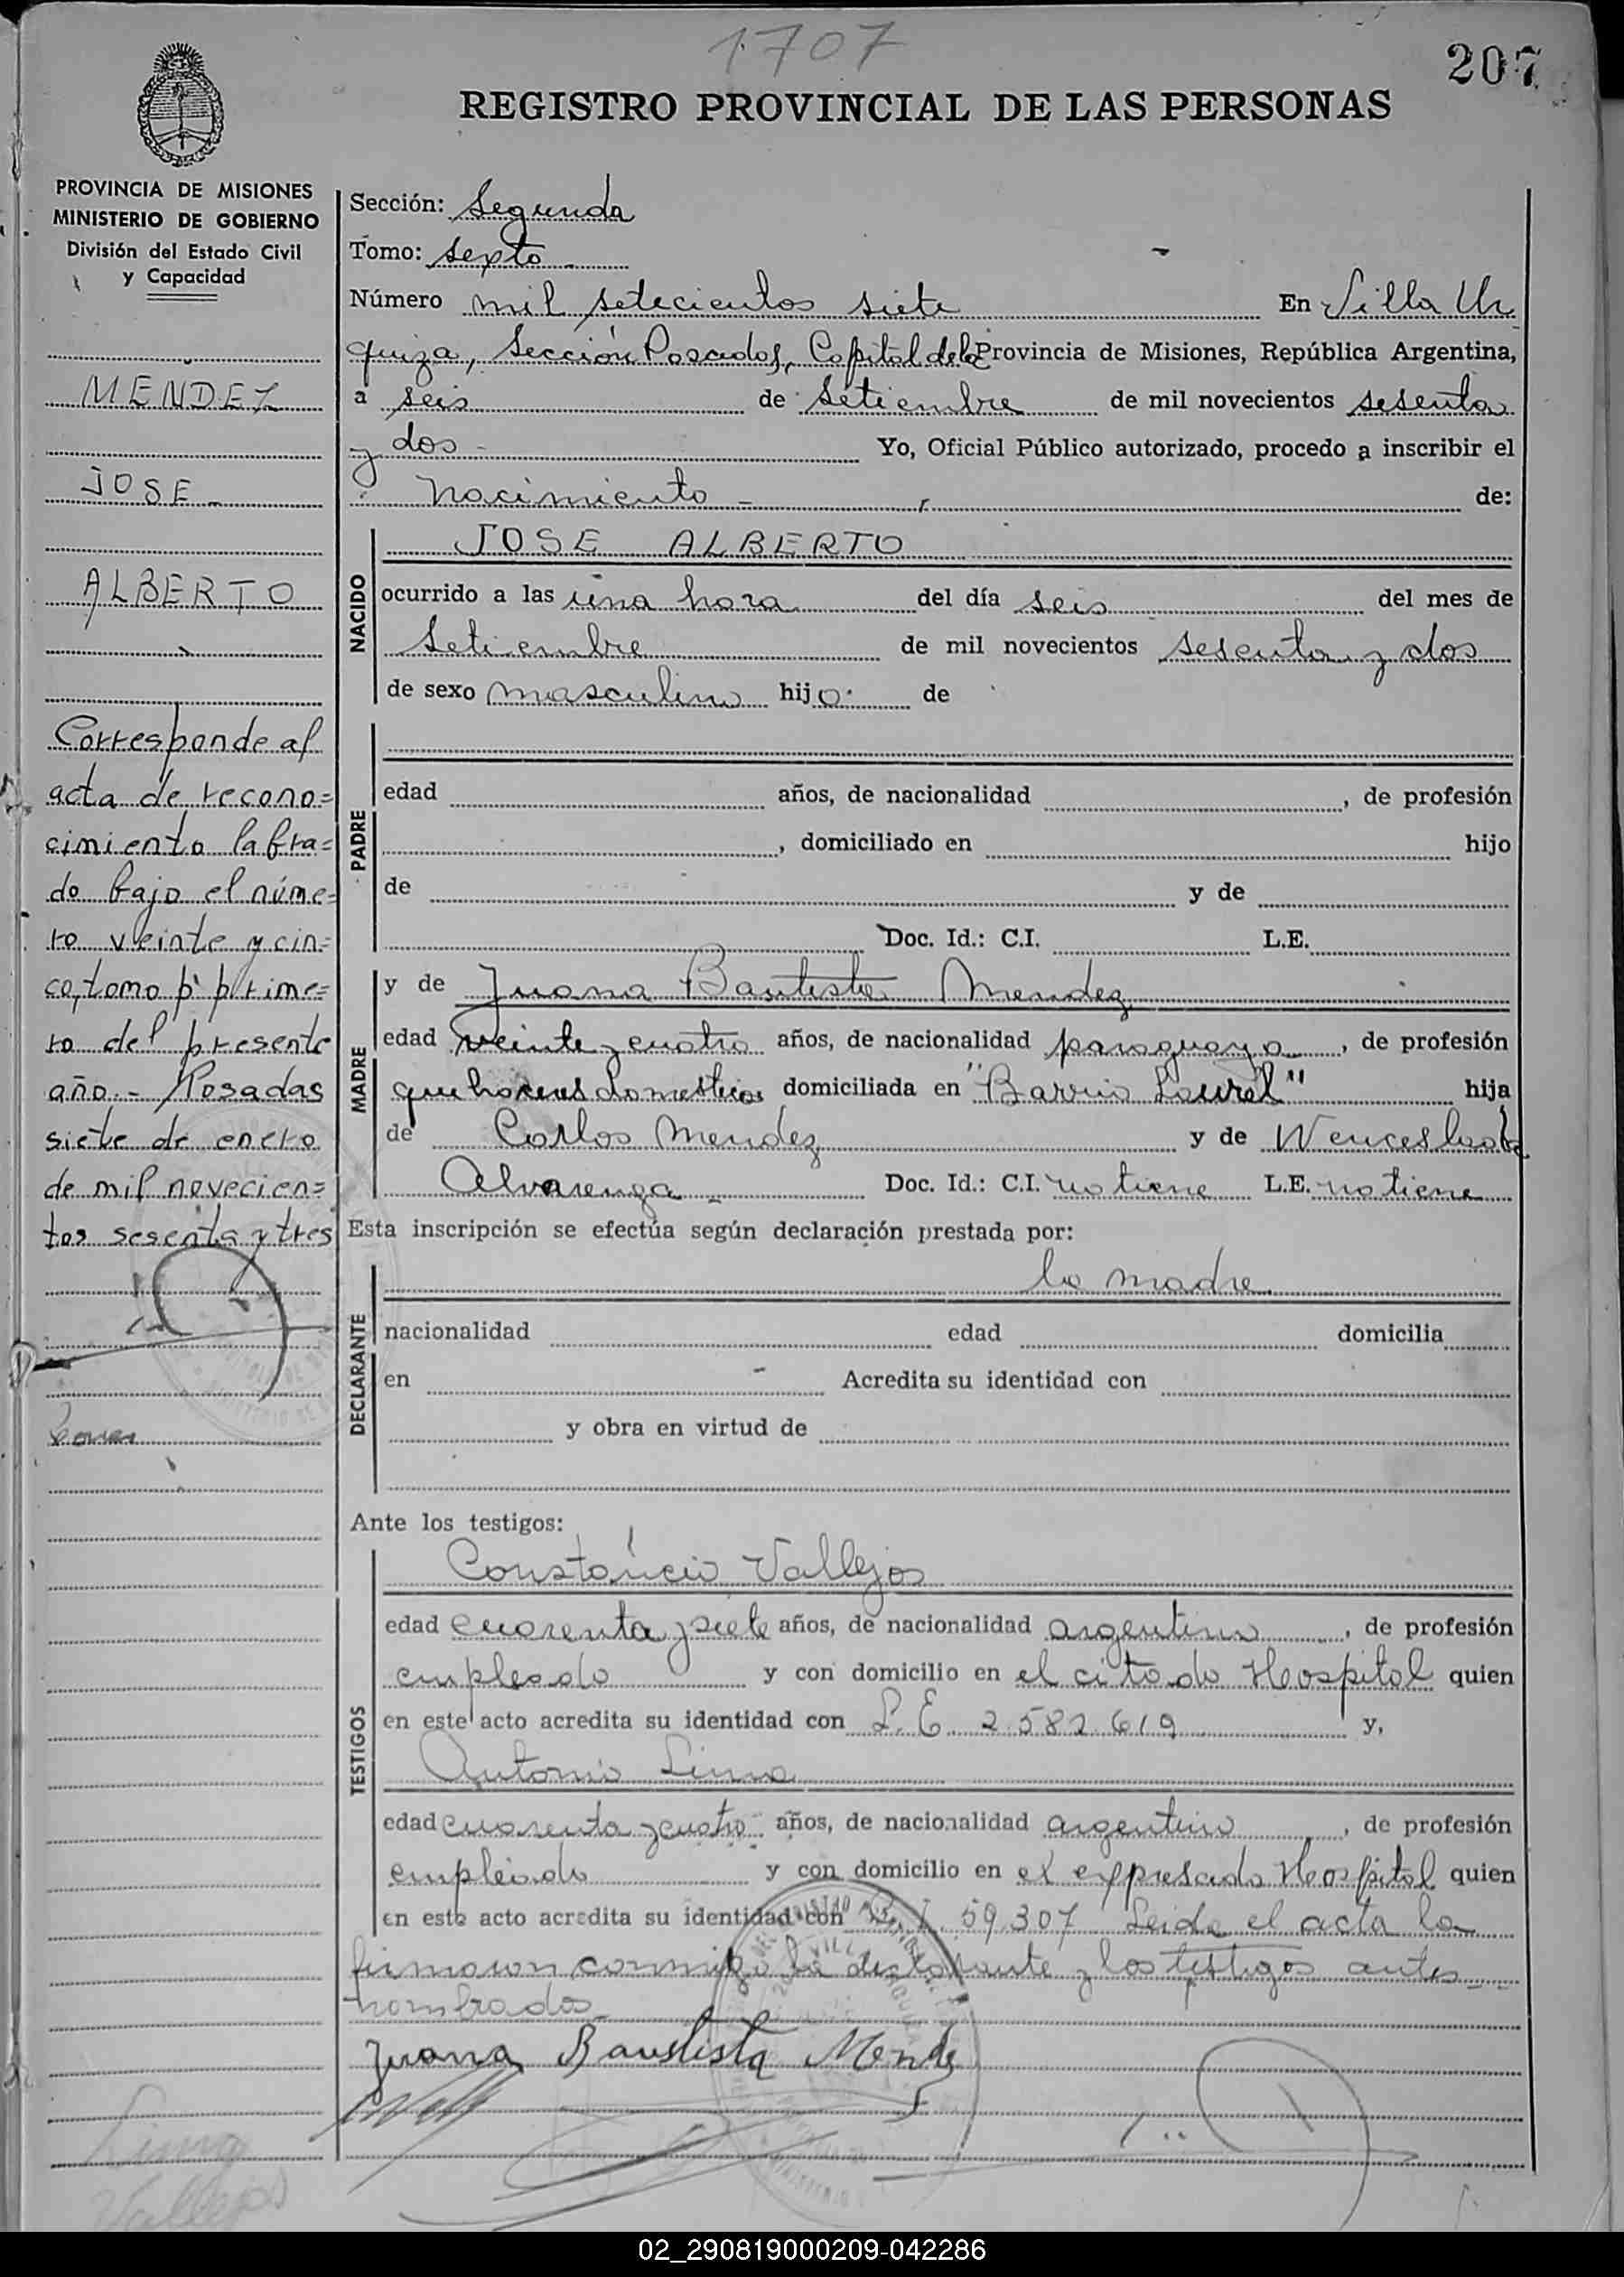 1707
207
REGISTRO PROVINCIAL DE LAS PERSONAS
PROVINCIA DE MISIONES
MINISTERIO DE GOBIERNO
División del Estado Civil
y Capacidad
MENDEZ
JOSE
ALBERTO
Corresponde al
acta de recono=
cimiento labra=
do bajo el núme=
ro veinte y cin=
co, tomo pº prime=
ro del presente
año.- Posadas
siete de enero
de mil novecien=
tos sesenta y tres
Lima
Vallejos
Sección: Segunda
Tomo: Sexto
Número mil setecientos siete En Villa Ur
quiza, Sección Posadas, Capital de la Provincia de Misiones, República Argentina,
a seis de Setiembre de mil novecientos sesenta
y dos - Yo, Oficial Público autorizado, procedo a inscribir el
nacimiento - de:
NACIDO
JOSE ALBERTO
ocurrido a las una hora del día seis del mes de
Setiembre de mil novecientos sesenta y dos
de sexo masculino hijo de
PADRE
edad años, de nacionalidad , de profesión
, domiciliado en hijo
de y de
Doc. Id.: C.I. L.E.
MADRE
y de Juana Bautista Mendez
edad veinte y cuatro años, de nacionalidad paraguaya , de profesión
quehaceres domesticos domiciliada en "Barrio Laurel" hija
de Carlos Mendez y de Wenceslada
Alvarenga - Doc. Id.: C.I. no tiene L.E. no tiene
Esta inscripción se efectúa según declaración prestada por:
DECLARANTE
la madre
nacionalidad edad domicilia
en Acredita su identidad con
y obra en virtud de
Ante los testigos:
TESTIGOS
Constancio Vallejos
edad cuarenta y siete años, de nacionalidad argentino , de profesión
empleado y con domicilio en el citado Hospital quien
en este acto acredita su identidad con L.E. 2.582.619 y,
Antonio Lima
edad cuarenta y cuatro años, de nacionalidad argentino , de profesión
empleado y con domicilio en el expresado Hospital quien
en este acto acredita su identidad con 59.307 Leida el acta la
firmaron conmigo la declarante y los testigos antes
nombrados
Juana Bautista Mendez
02_290819000209-042286